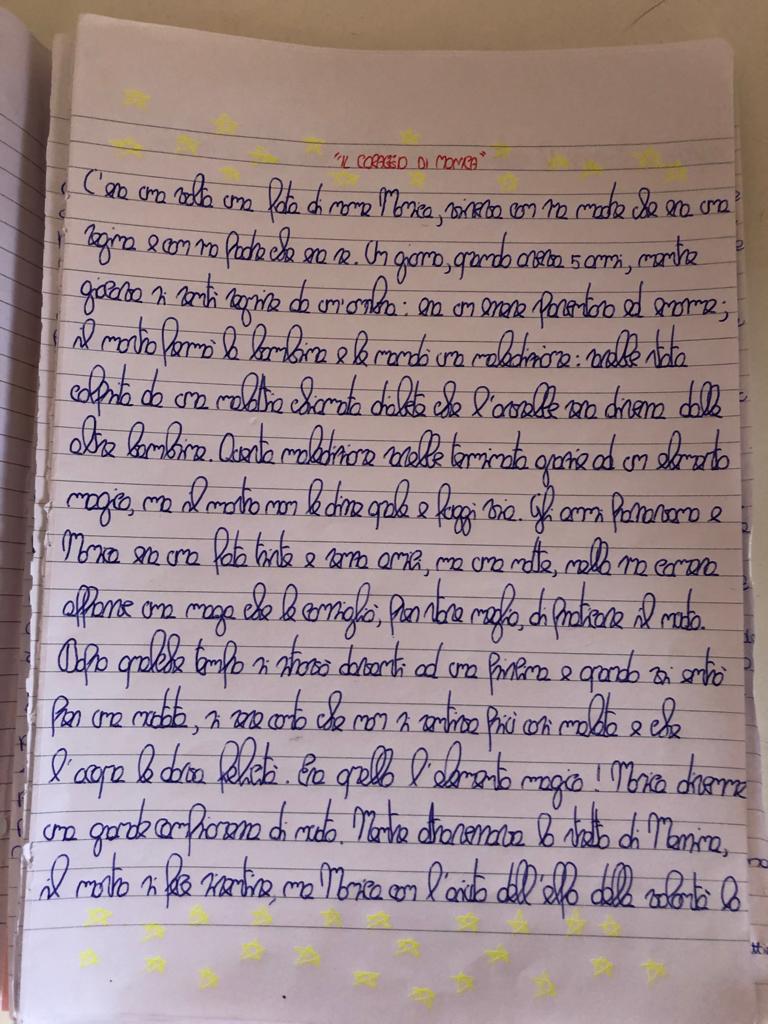 "IL CORAGGIO DI MONICA"
C'era una volta una fata di nome Monica, viveva con sua madre che era una
regina e con suo padre che era re. Un giorno, quando aveva 5 anni, mentre
giocava si sentì seguire da un'ombra: era un essere pauroso ed enorme;
il mostro fermò la bambina e le mandò una maledizione: sarebbe stata
colpita da una malattia chiamata diabete che l'avrebbe resa diversa dalle
altre bambine. Questa maledizione sarebbe terminata grazie ad un elemento
magico, ma il mostro non le disse quale e fuggì via. Gli anni passarono e
Monica era una fata triste e senza amici, ma una notte, nella sua camera
apparve una maga che le consigliò, per stare meglio, di praticare il nuoto.
Dopo qualche tempo si ritrovò davanti ad una piscina e quando vi entrò
per una nuotata, si rese conto che non si sentiva più così malata e che
l'acqua le dava felicità. Era quello l'elemento magico! Monica divenne
una grande campionessa di nuoto. Mentre attraversava lo stretto di Messina,
il mostro si fece risentire, ma Monica con l'aiuto dell'elfo della volontà lo